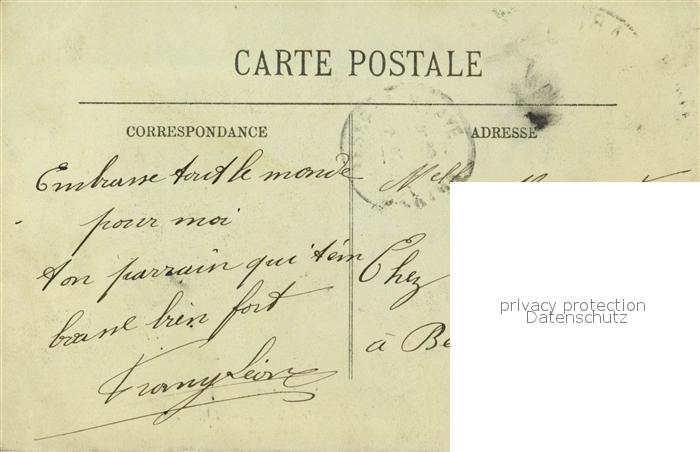 CARTE POSTALE
CORRESPONDANCE
ADRESSE
Embrasse tout le monde
pour moi
ton parrain qui t'em
brasse bien fort
Melle
Chez
à Be
privacy protection
Datenschutz